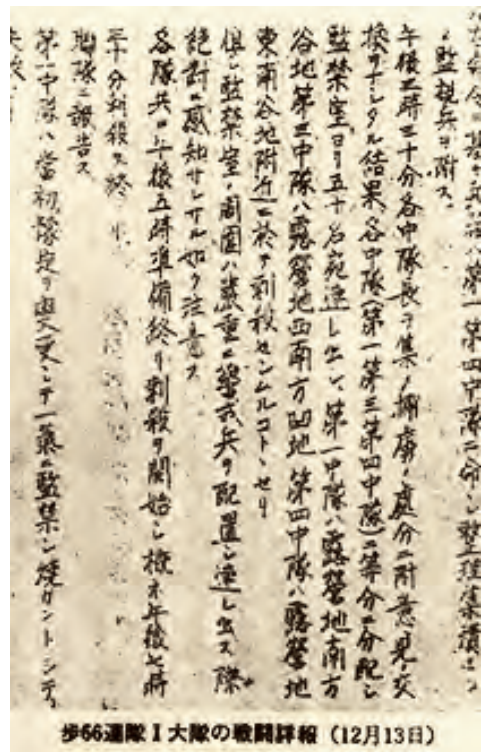 ハ第一第四中隊ニ命シ整理集積セシ
監視兵ヲ附ス
午後三時三十分各中隊長ヲ集メ捕虜ノ處分ニ附意見ノ交
換ヲナシタル結果各中隊(第一第三第四中隊)ニ等分ニ分配シ
監禁室ヨリ五十名宛連レ出シ、第一中隊ハ露營地南方
谷地第三中隊ハ露營地西南方凹地第四中隊ハ露營地
東南谷地附近ニ於テ刺殺セシムルコトヽセリ
但シ監禁室ノ周圍ハ嚴重ニ警戒兵ヲ配置シ連レ出ス際
絶對ニ感知サレサル如ク注意ス
各隊共ニ午後五時準備終リ刺殺ヲ開始シ概ネ午後七時
三十分刺殺ヲ終リ
聯隊ニ報告ス
第一中隊ハ當初ノ豫定ヲ變更シテ一氣ニ監禁シ焼カントシテ
失敗
歩66連隊Ⅰ大隊の戦闘詳報(12月13日)